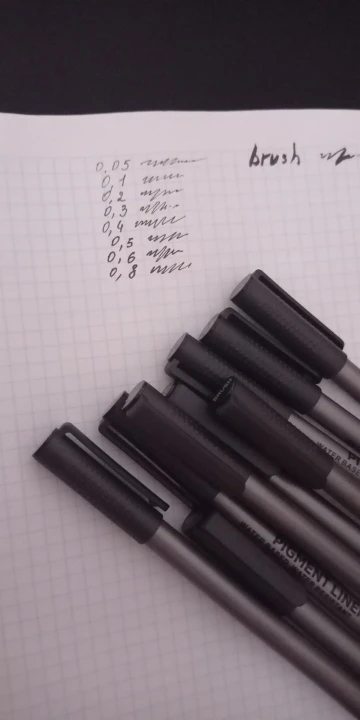 0,05
0,1
0,2
0,3
0,4
0,5
0,6
0,8
brush
WATER BASE
PIGMENT LINE